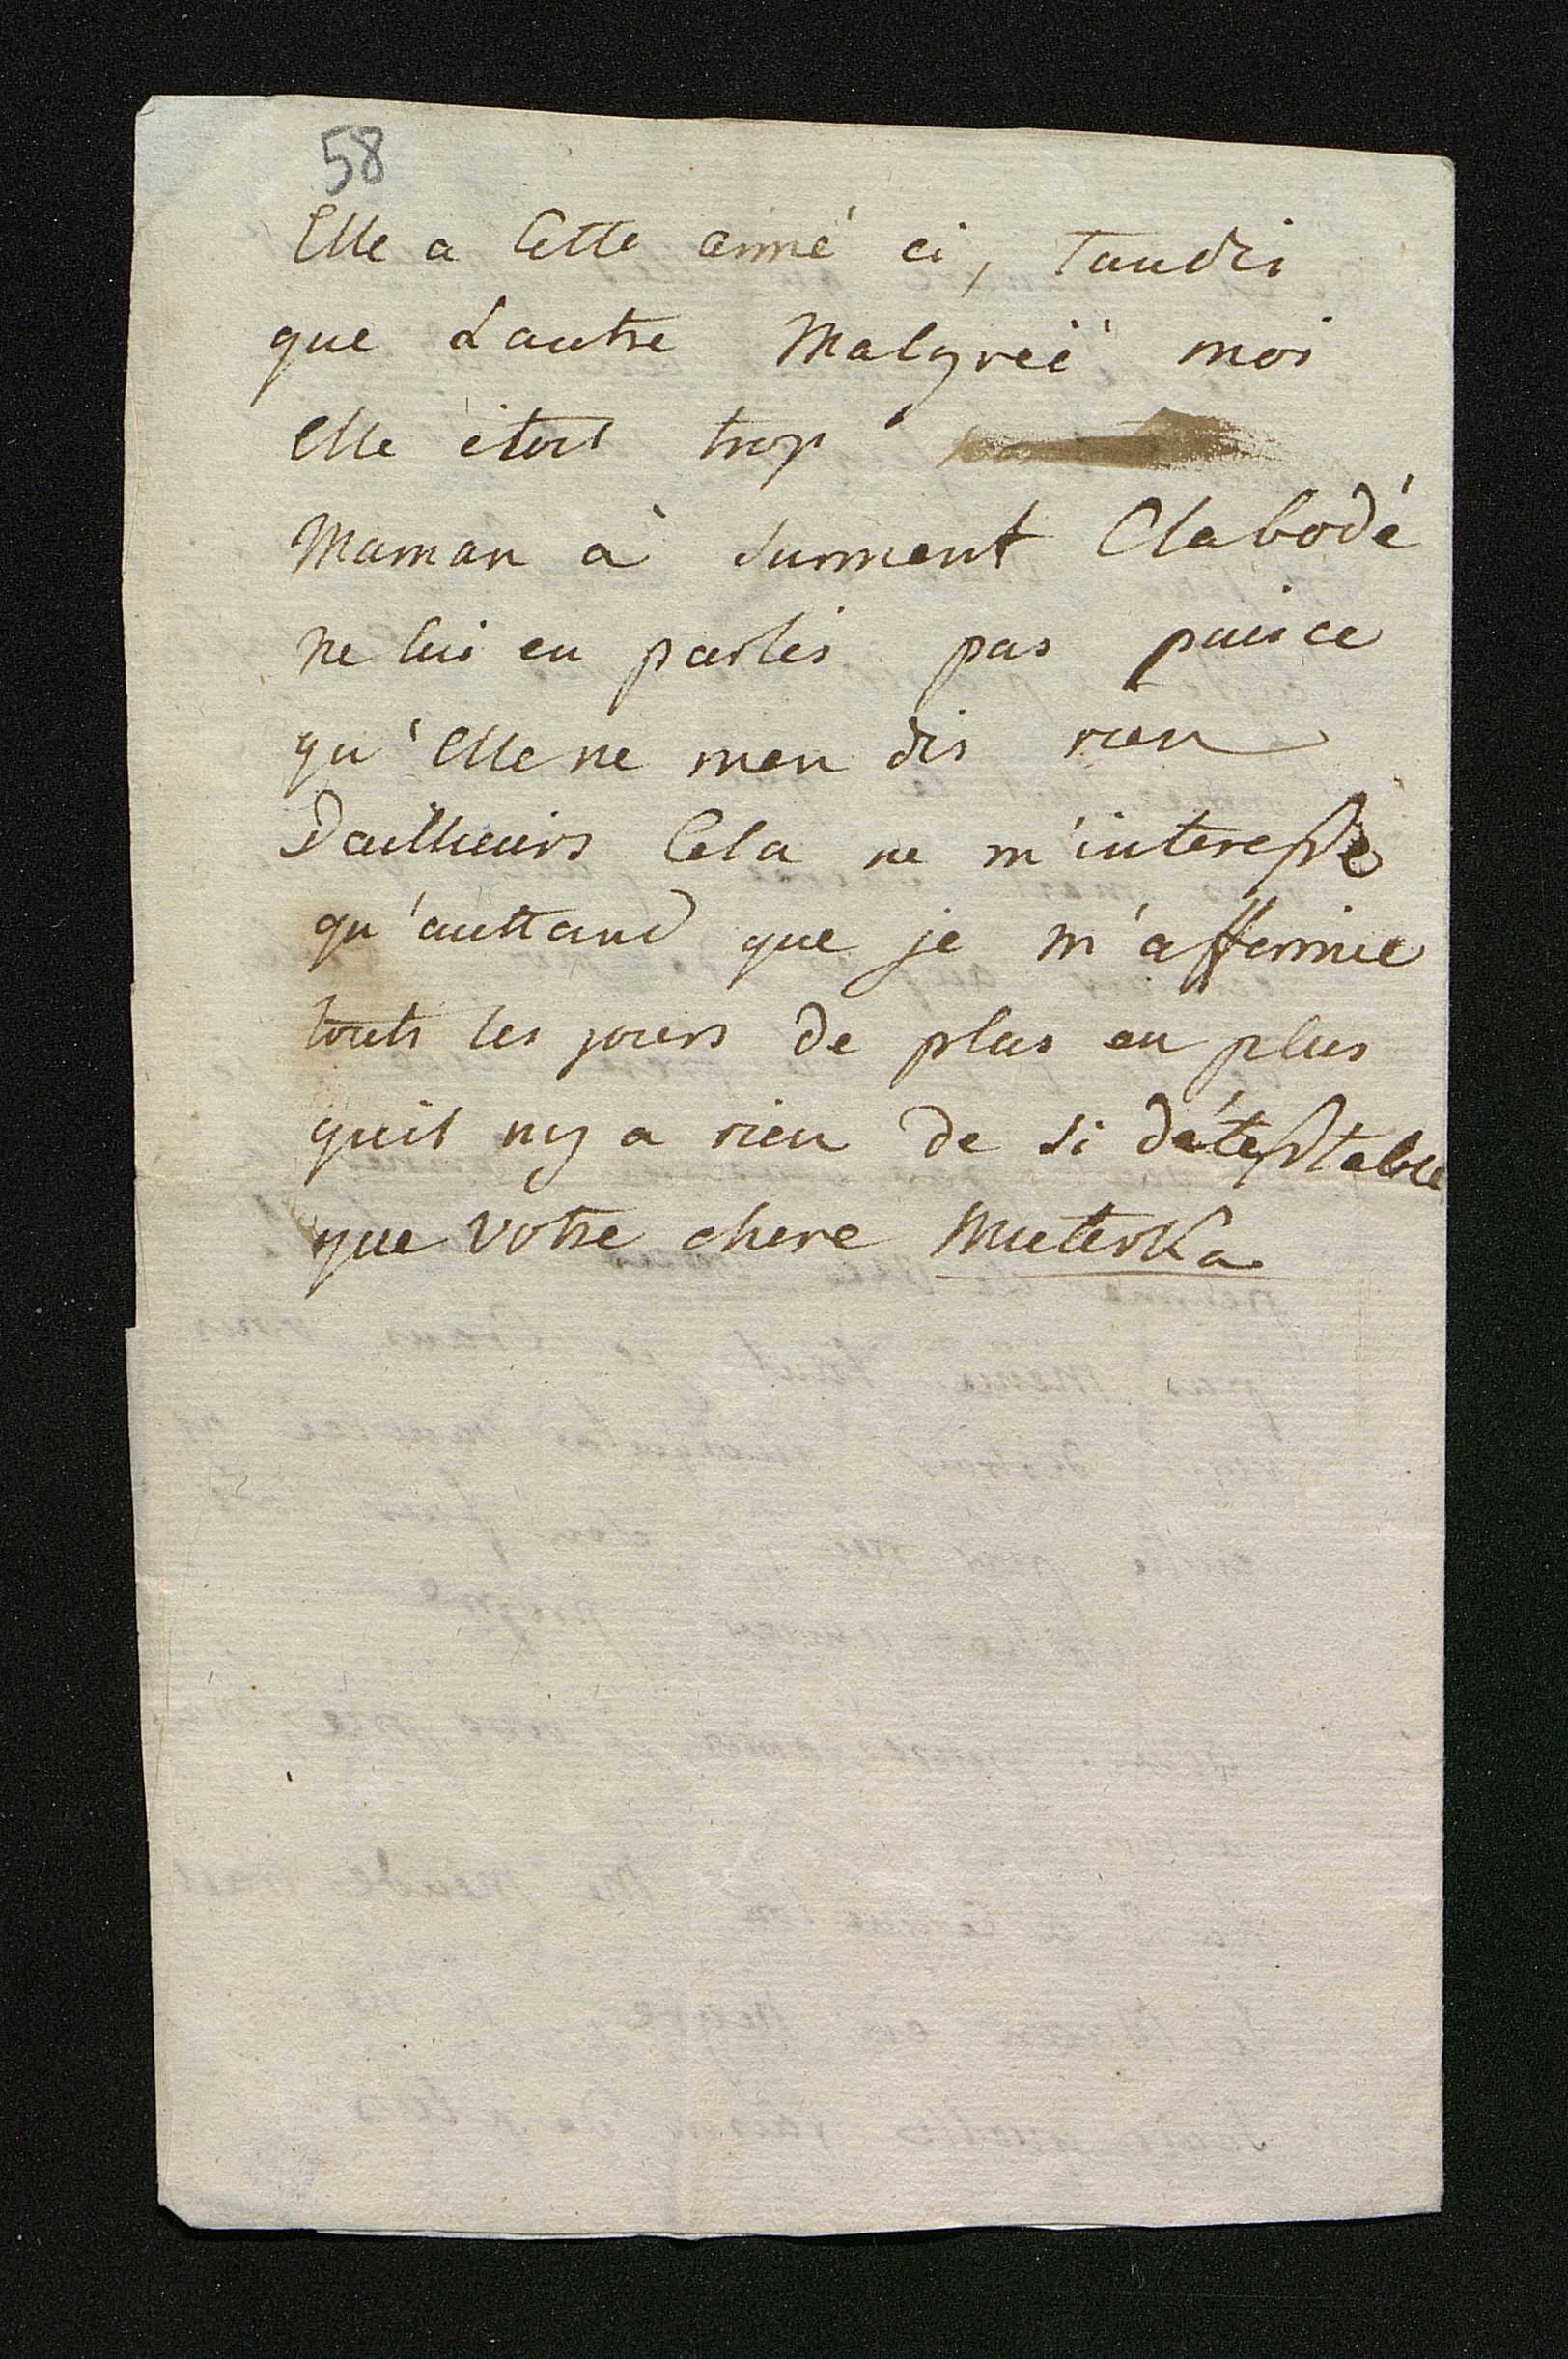 58
Elle a Cette anné ci, Tandis
que Lautre Malgréé moi
elle étoit trop
Maman à surment Clabodé
ne lui en parlés pas puice
qu'elle ne men dis rien
Dailleuirs Cela ne m'interesse
qu'auttand que je m'affermie
touts les jours de plus en plus
quil ny a rien de si détestable
que votre chere Muterka